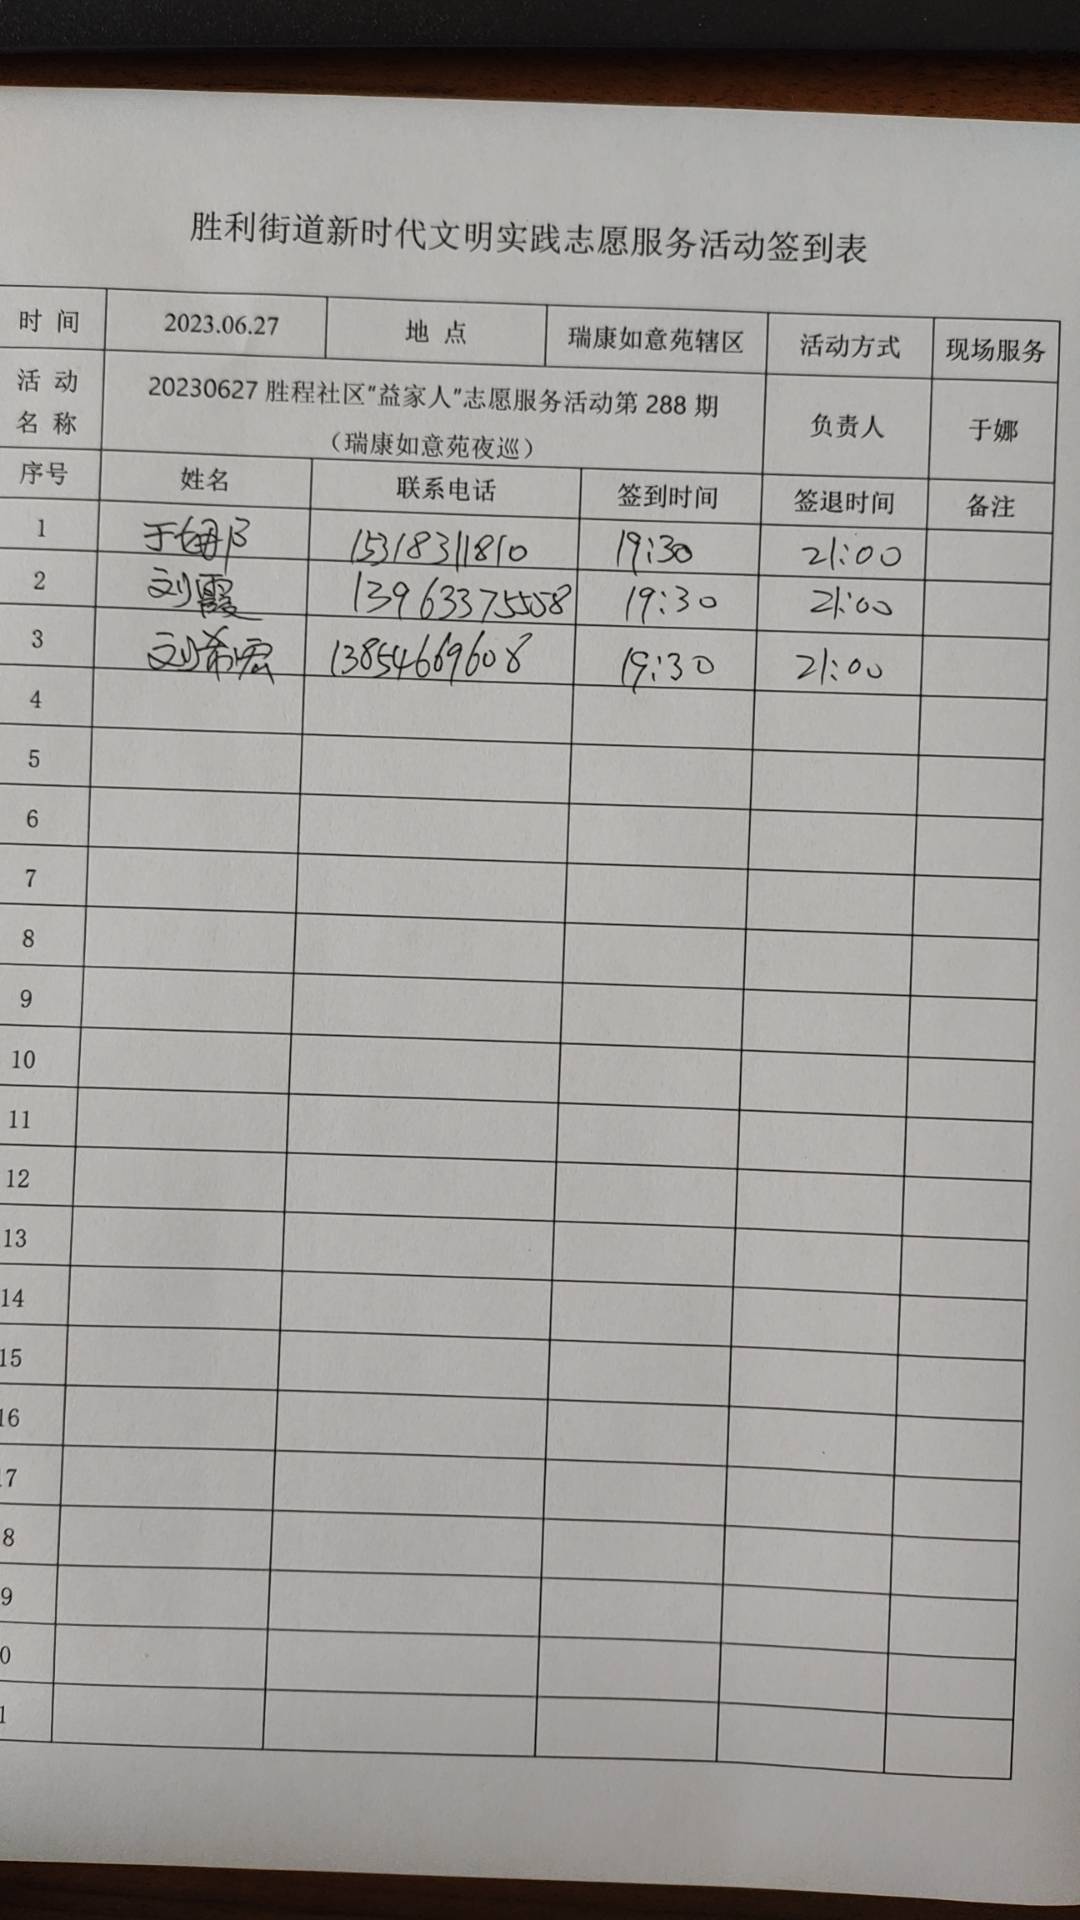 胜利街道新时代文明实践志愿服务活动签到表
时 间 2023.06.27 地 点 瑞康如意苑辖区 活动方式 现场服务
活 动 名 称 20230627 胜程社区“益家人”志愿服务活动第 288 期 负责人 于娜
（瑞康如意苑夜巡）
序号 姓名 联系电话 签到时间 签退时间 备注
1 于娜 15318311810 19:30 21:00
2 刘霞 13963375508 19:30 21:00
3 刘希宏 13854669608 19:30 21:00
4
5
6
7
8
9
10
11
12
13
14
15
16
17
8
9
0
1